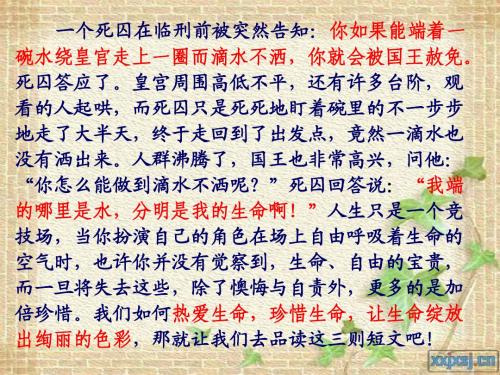 一个死囚在临刑前被突然告知：你如果能端着一
碗水绕皇宫走上一圈而滴水不洒，你就会被国王赦免。
死囚答应了。皇宫周围高低不平，还有许多台阶，观
看的人起哄，而死囚只是死死地盯着碗里的不一步步
地走了大半天，终于走回到了出发点，竟然一滴水也
没有洒出来。人群沸腾了，国王也非常高兴，问他：
“你怎么能做到滴水不洒呢？”死囚回答说：“我端
的哪里是水，分明是我的生命啊！”人生只是一个竞
技场，当你扮演自己的角色在场上自由呼吸着生命的
空气时，也许你并没有觉察到，生命、自由的宝贵，
而一旦将失去这些，除了懊悔与自责外，更多的是加
倍珍惜。我们如何热爱生命，珍惜生命，让生命绽放
出绚丽的色彩，那就让我们去品读这三则短文吧！
xxjxsj.cn